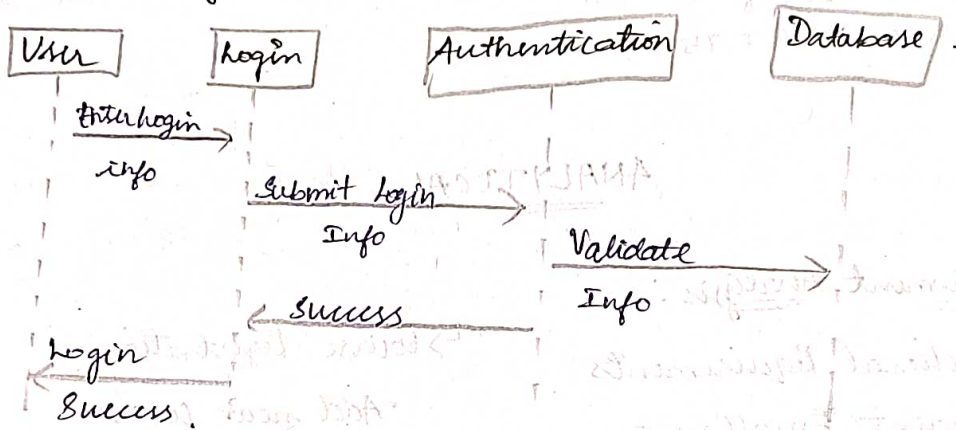 User
Login
Authentication
Database.
Enter Login
info
Submit Login
Info
Validate
Info
Success
Login
Success.